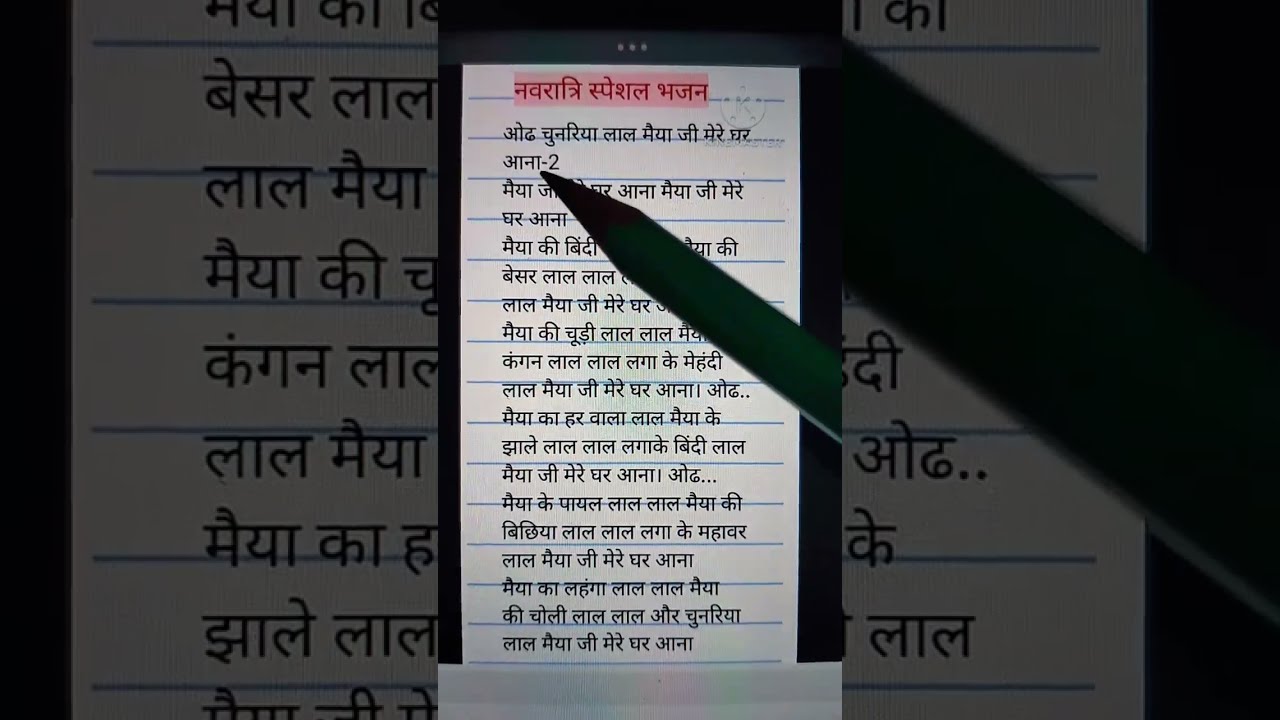 नवरात्रि स्पेशल भजन
ओढ चुनरिया लाल मैया जी मेरे घर
आना-2
मैया जी घर आना मैया जी मेरे
घर आना
मैया की बिंदी मैया की
बेसर लाल लाल
लाल मैया जी मेरे घर
मैया की चूड़ी लाल लाल मैया
कंगन लाल लाल लगा के मेहंदी
लाल मैया जी मेरे घर आना। ओढ..
मैया का हर वाला लाल मैया के
झाले लाल लाल लगाके बिंदी लाल
मैया जी मेरे घर आना। ओढ...
मैया के पायल लाल लाल मैया की
बिछिया लाल लाल लगा के महावर
लाल मैया जी मेरे घर आना
मैया का लहंगा लाल लाल मैया
की चोली लाल लाल और चुनरिया
लाल मैया जी मेरे घर आना